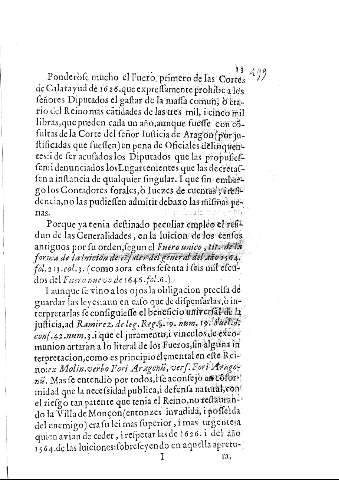 33 499
Ponderòse mucho el Fuero, primero de las Cortes
de Calatayud de 1626. que expressamente prohibe a les
señores Diputados el gastar de la massa comun, ò era-
rio del Reino mas cãtidades de las tres mil, i cinco mil
libras, que pueden cada un año, aunque fuesse con cõ-
sultas de la Corte del señor Iusticia de Aragon (por jus-
tificadas que fuessen) en pena de Oficiales delinquen-
tes: i de ser acusados los Diputados que las propusies-
sen: i denunciados los Lugartenientes que las decretas-
sen a instancia de qualquier singular. I que sin embar-
go los Contadores forales, ò Iueces de cuentas, i resi-
dencia, no las pudiessen admitir debaxo las mismas pe-
nas.
Porque ya tenia destinado peculiar empleo el resi-
dun de las Generalidades, en la luicion de los censos
antiguos por su orden, segun el Fuero unico, tit. de la
forma de la luicion de censos del general del año 1564.
fol. 213. col. 3. (como aora estos sesenta i seis mil escu-
dos del Fuero nuevo de 1646. fol. 6.)
I aunque se vino a los ojos la obligacion precisa de
guardar las leyes, aun en caso que de dispensarlas, ò in-
terpretarlas se consiguiesse el beneficio universal de la
justicia, ad Ramirez. de leg. Reg. §. 9. num. 19.
conf. 42. num. 3. i que el juramento, i vinculos de exco-
munion atràran a lo literal de los Fueros, sin alguna in-
terpretacion, como es principio elemental en este Rei-
no ex Molin. verbo Fori Aragonũ, vers. Fori Arago-
nũ. Mas se entendiò por todos, i se aconsejò en cõfor-
midad que la necessidad publica, i defensa natural, con
el riesgo tan patente que tenia el Reino, no restauran-
do la Villa de Monçon (entonzes invadida, i posseida
del enemigo) era su lei mas superior, i mas urgente; a
quien avian de ceder, i respetar las de 1626. i del año
1564. de las luiciones sobreseyendo en aquella apretu-
I ra,